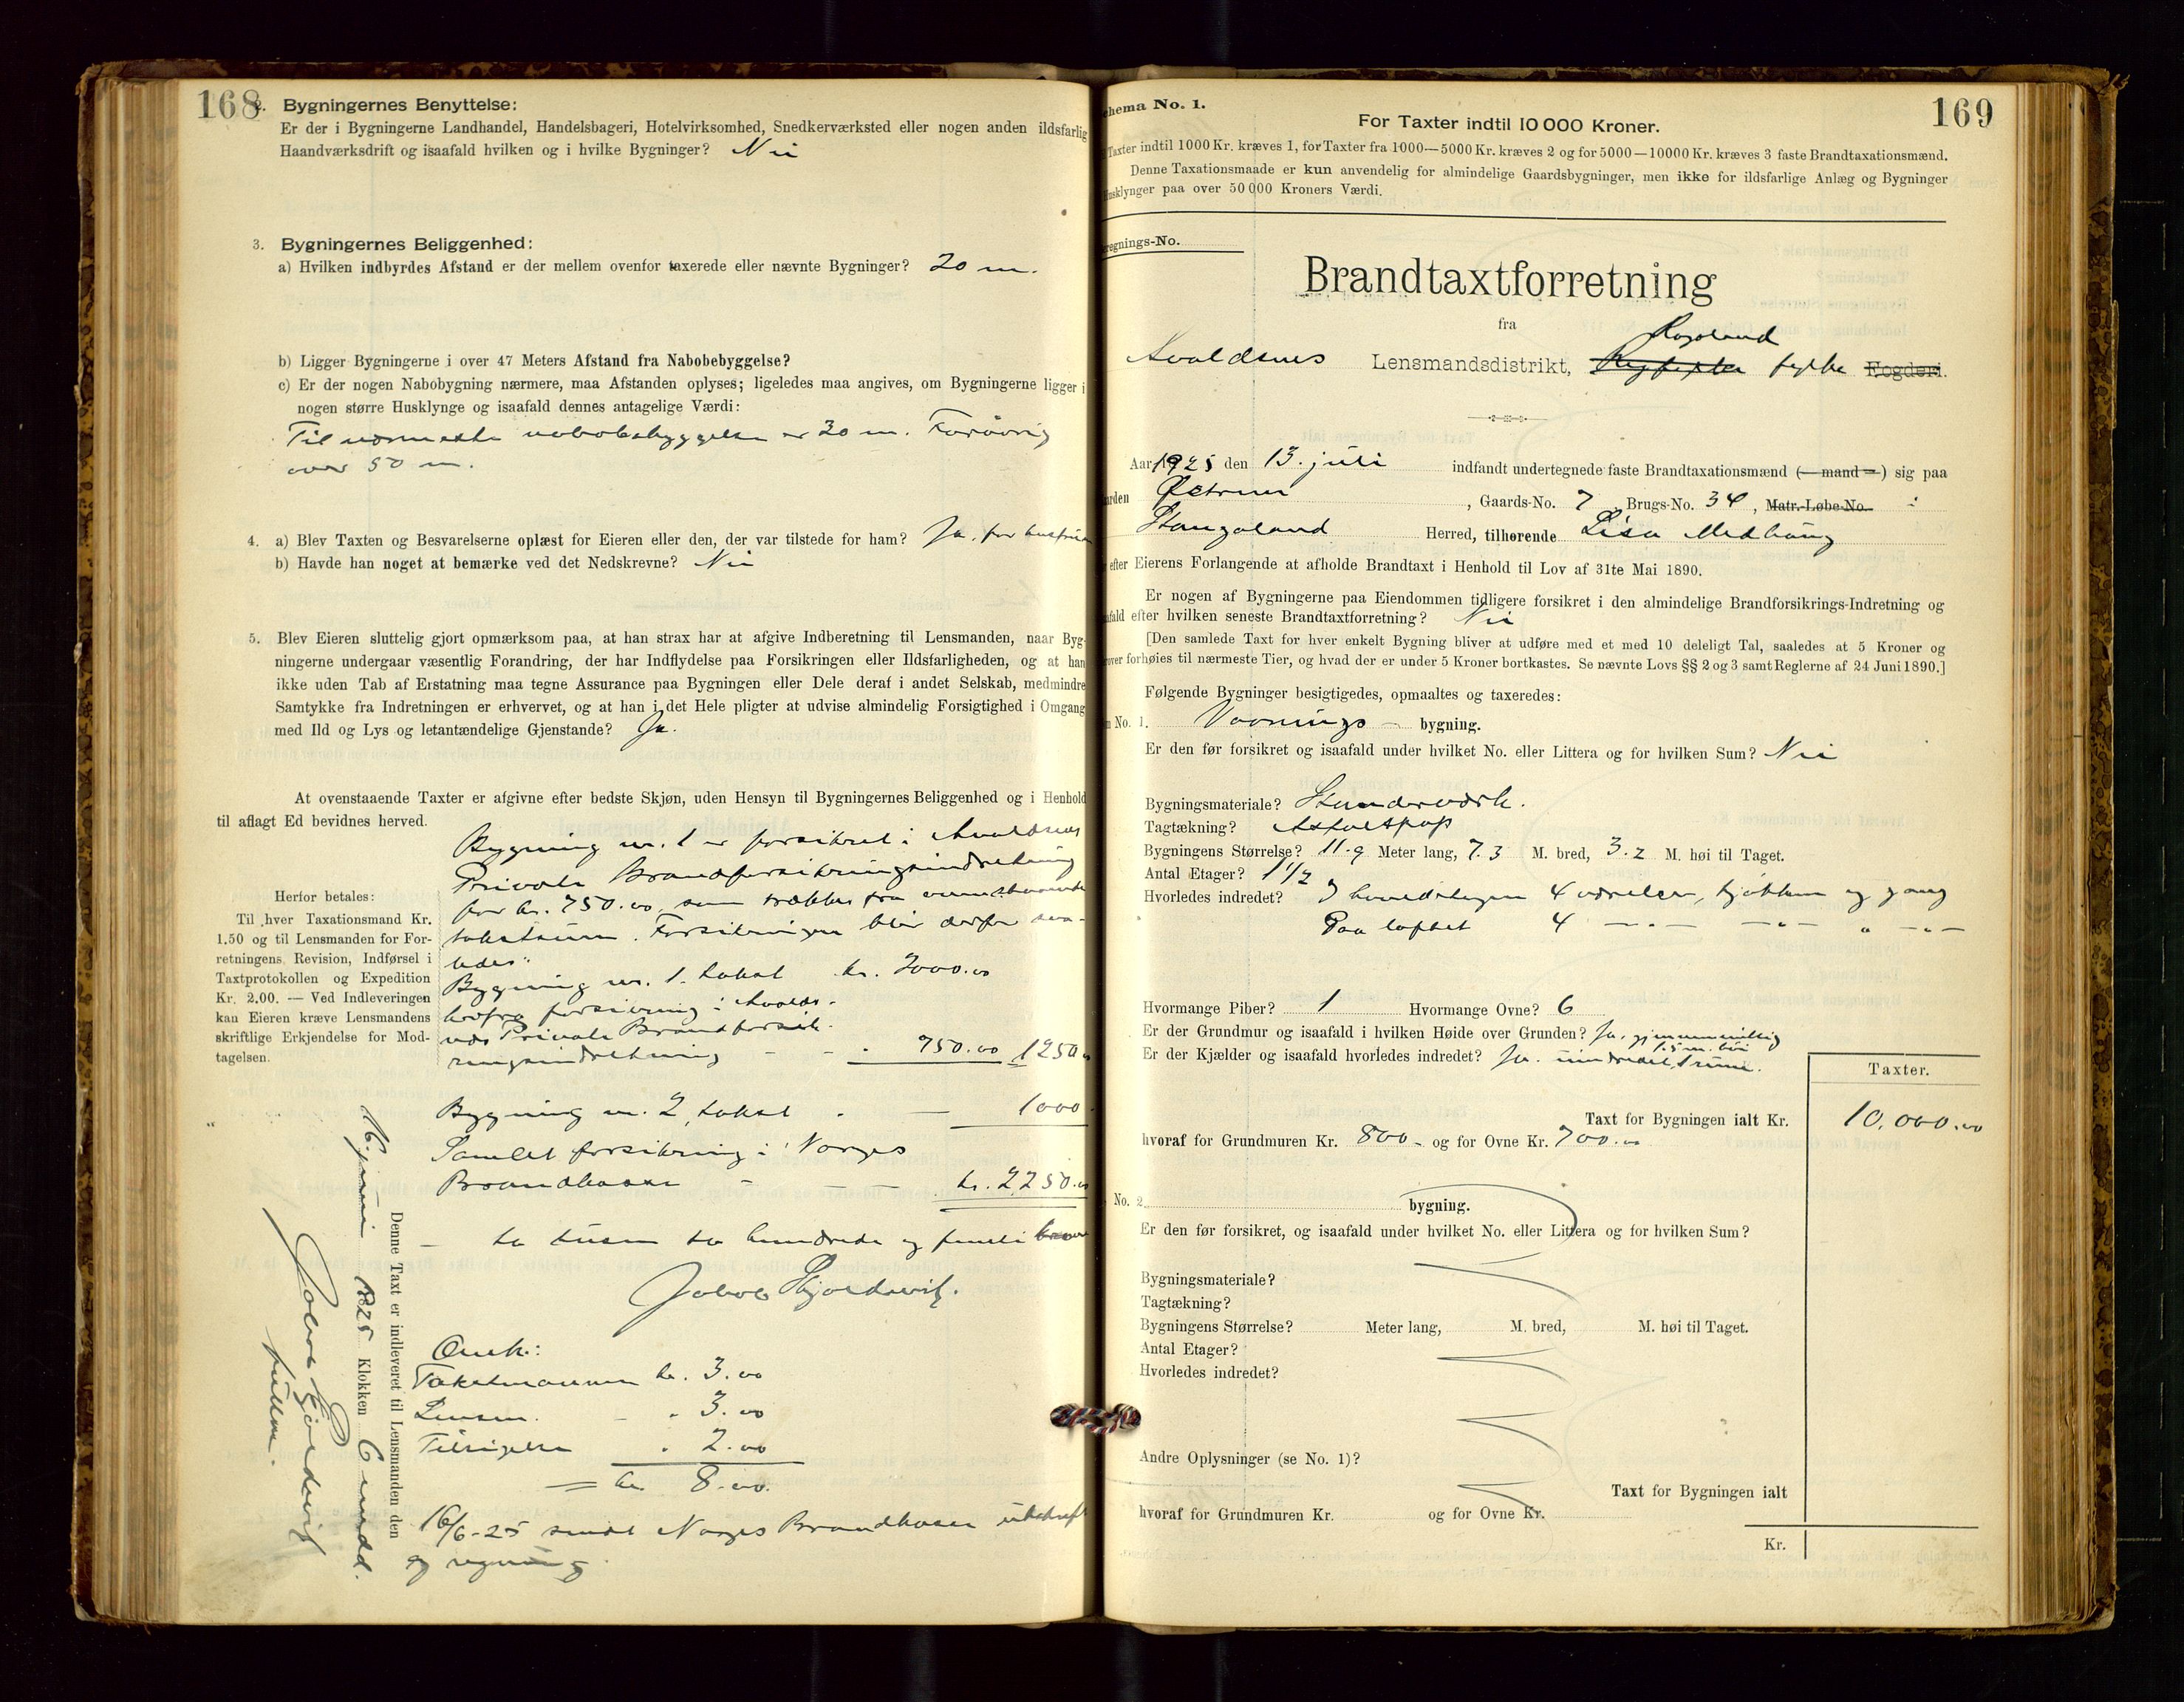 168
2. Bygningernes Benyttelse:
Er der i Bygningerne Landhandel, Handelsbageri, Hotelvirksomhed, Snedkerværksted eller nogen anden ildsfarlig
Haandværksdrift og isaafald hvilken og i hvilke Bygninger? Nei
3. Bygningernes Beliggenhed:
a) Hvilken indbyrdes Afstand er der mellem ovenfor taxerede eller nævnte Bygninger? 20 m.
b) Ligger Bygningerne i over 47 Meters Afstand fra Nabobebyggelse?
c) Er der nogen Nabobygning nærmere, maa Afstanden oplyses; ligeledes maa angives, om Bygningerne ligger i
nogen større Husklynge og isaafald dennes antagelige Værdi:
Til nærmeste nabobebyggelse er 30 m. Forøvrig
over 50 m.
4. a) Blev Taxten og Besvarelserne oplæst for Eieren eller den, der var tilstede for ham? Ja, for hustruen
b) Havde han noget at bemærke ved det Nedskrevne? Nei
5. Blev Eieren sluttelig gjort opmærksom paa, at han strax har at afgive Indberetning til Lensmanden, naar Byg-
ningerne undergaar væsentlig Forandring, der har Indflydelse paa Forsikringen eller Ildsfarligheden, og at han
ikke uden Tab af Erstatning maa tegne Assurance paa Bygningen eller Dele deraf i andet Selskab, medmindre
Samtykke fra Indretningen er erhvervet, og at han i det Hele pligter at udvise almindelig Forsigtighed i Omgang
med Ild og Lys og letantændelige Gjenstande? Ja.
At ovenstaaende Taxter er afgivne efter bedste Skjøn, uden Hensyn til Bygningernes Beliggenhed og i Henhold
til aflagt Ed bevidnes herved.
Bygning nr. 1 er forsikret i Avaldsnes
Private Brandforsikringsindretning
for kr. 750.00, som trækkes fra ovenstaaende
takstsum. Forsikringen blir derfor saa-
ledes:
Bygning nr. 1. takst kr. 2000.00
herfra forsikring i Avalds-
nes Private Brandforsik-
ringsindretning - - - 750.00 1250.00
Herfor betales:
Til hver Taxationsmand Kr.
1.50 og til Lensmanden for For-
retningens Revision, Indførsel i
Taxtprotokollen og Expedition
Kr. 2.00. — Ved Indleveringen
kan Eieren kræve Lensmandens
skriftlige Erkjendelse for Mod-
tagelsen.
Bygning nr. 2, takst - — 1000
Samlet forsikring i Norges
Brandkasse - — — kr. 2250.00
— to tusen to hundrede og femti kroner
Jakob Skjoldevig.
Omk.:
Takstmannen kr. 3.00
Lensm. - " 3.00
Tilsigelse " 2.00
= kr. 8.00.
16/6-25 sendt Norges Brandkasse utskrift
og regning.
Denne Taxt er indleveret til Lensmanden den
16. juni 1925 Klokken 6 emdd.
Jakob Skjoldevig
fullm.
Schema No. 1.
169
For Taxter indtil 10 000 Kroner.
Taxter indtil 1000 Kr. kræves 1, for Taxter fra 1000—5000 Kr. kræves 2 og for 5000—10000 Kr. kræves 3 faste Brandtaxationsmænd.
Denne Taxationsmaade er kun anvendelig for almindelige Gaardsbygninger, men ikke for ildsfarlige Anlæg og Bygninger
Husklynger paa over 50 000 Kroners Værdi.
regnings-No.
Brandtaxtforretning
fra
Rogaland
Avaldsnes Lensmandsdistrikt, Ryfylke fylke Fogderi.
Aar 1925 den 13. juli indfandt undertegnede faste Brandtaxationsmænd (— mand —) sig paa
Gaarden Østrem, Gaards-No. 7, Brugs-No. 34, Matr.-Løbe-No. i
Stangaland Herred, tilhørende Lisa Medhaug
efter Eierens Forlangende at afholde Brandtaxt i Henhold til Lov af 31te Mai 1890.
Er nogen af Bygningerne paa Eiendommen tidligere forsikret i den almindelige Brandforsikrings-Indretning og
isaafald efter hvilken seneste Brandtaxtforretning? Nei
[Den samlede Taxt for hver enkelt Bygning bliver at udføre med et med 10 deleligt Tal, saaledes at 5 Kroner og
over forhøies til nærmeste Tier, og hvad der er under 5 Kroner bortkastes. Se nævnte Lovs §§ 2 og 3 samt Reglerne af 24 Juni 1890.]
Følgende Bygninger besigtigedes, opmaaltes og taxeredes:
No. 1. Vaanings- bygning.
Er den før forsikret og isaafald under hvilket No. eller Littera og for hvilken Sum? Nei
Bygningsmateriale? Stenderværk.
Tagtækning? Asfaltpap
Bygningens Størrelse? 11.9 Meter lang, 7.3 M. bred, 3.2 M. høi til Taget.
Antal Etager? 1 1/2
Hvorledes indredet? I hovedetagen 4 værelser, kjøkken og gang
Paa loftet 4 —"— —"— " —"—
Hvormange Piber? 1 Hvormange Ovne? 6
Er der Grundmur og isaafald i hvilken Høide over Grunden? Ja, gjennemsnitlig
1.5 m. høi
Er der Kjælder og isaafald hvorledes indredet? Ja. uindredet, 1 rum.
Taxter.
Taxt for Bygningen ialt Kr. 10.000.00
hvoraf for Grundmuren Kr. 800.- og for Ovne Kr. 700.00
No. 2 bygning.
Er den før forsikret, og isaafald under hvilket No. eller Littera og for hvilken Sum?
Bygningsmateriale?
Tagtækning?
Bygningens Størrelse? Meter lang, M. bred, M. høi til Taget.
Antal Etager?
Hvorledes indredet?
Andre Oplysninger (se No. 1)?
Taxt for Bygningen ialt
hvoraf for Grundmuren Kr. og for Ovne Kr.
Kr.